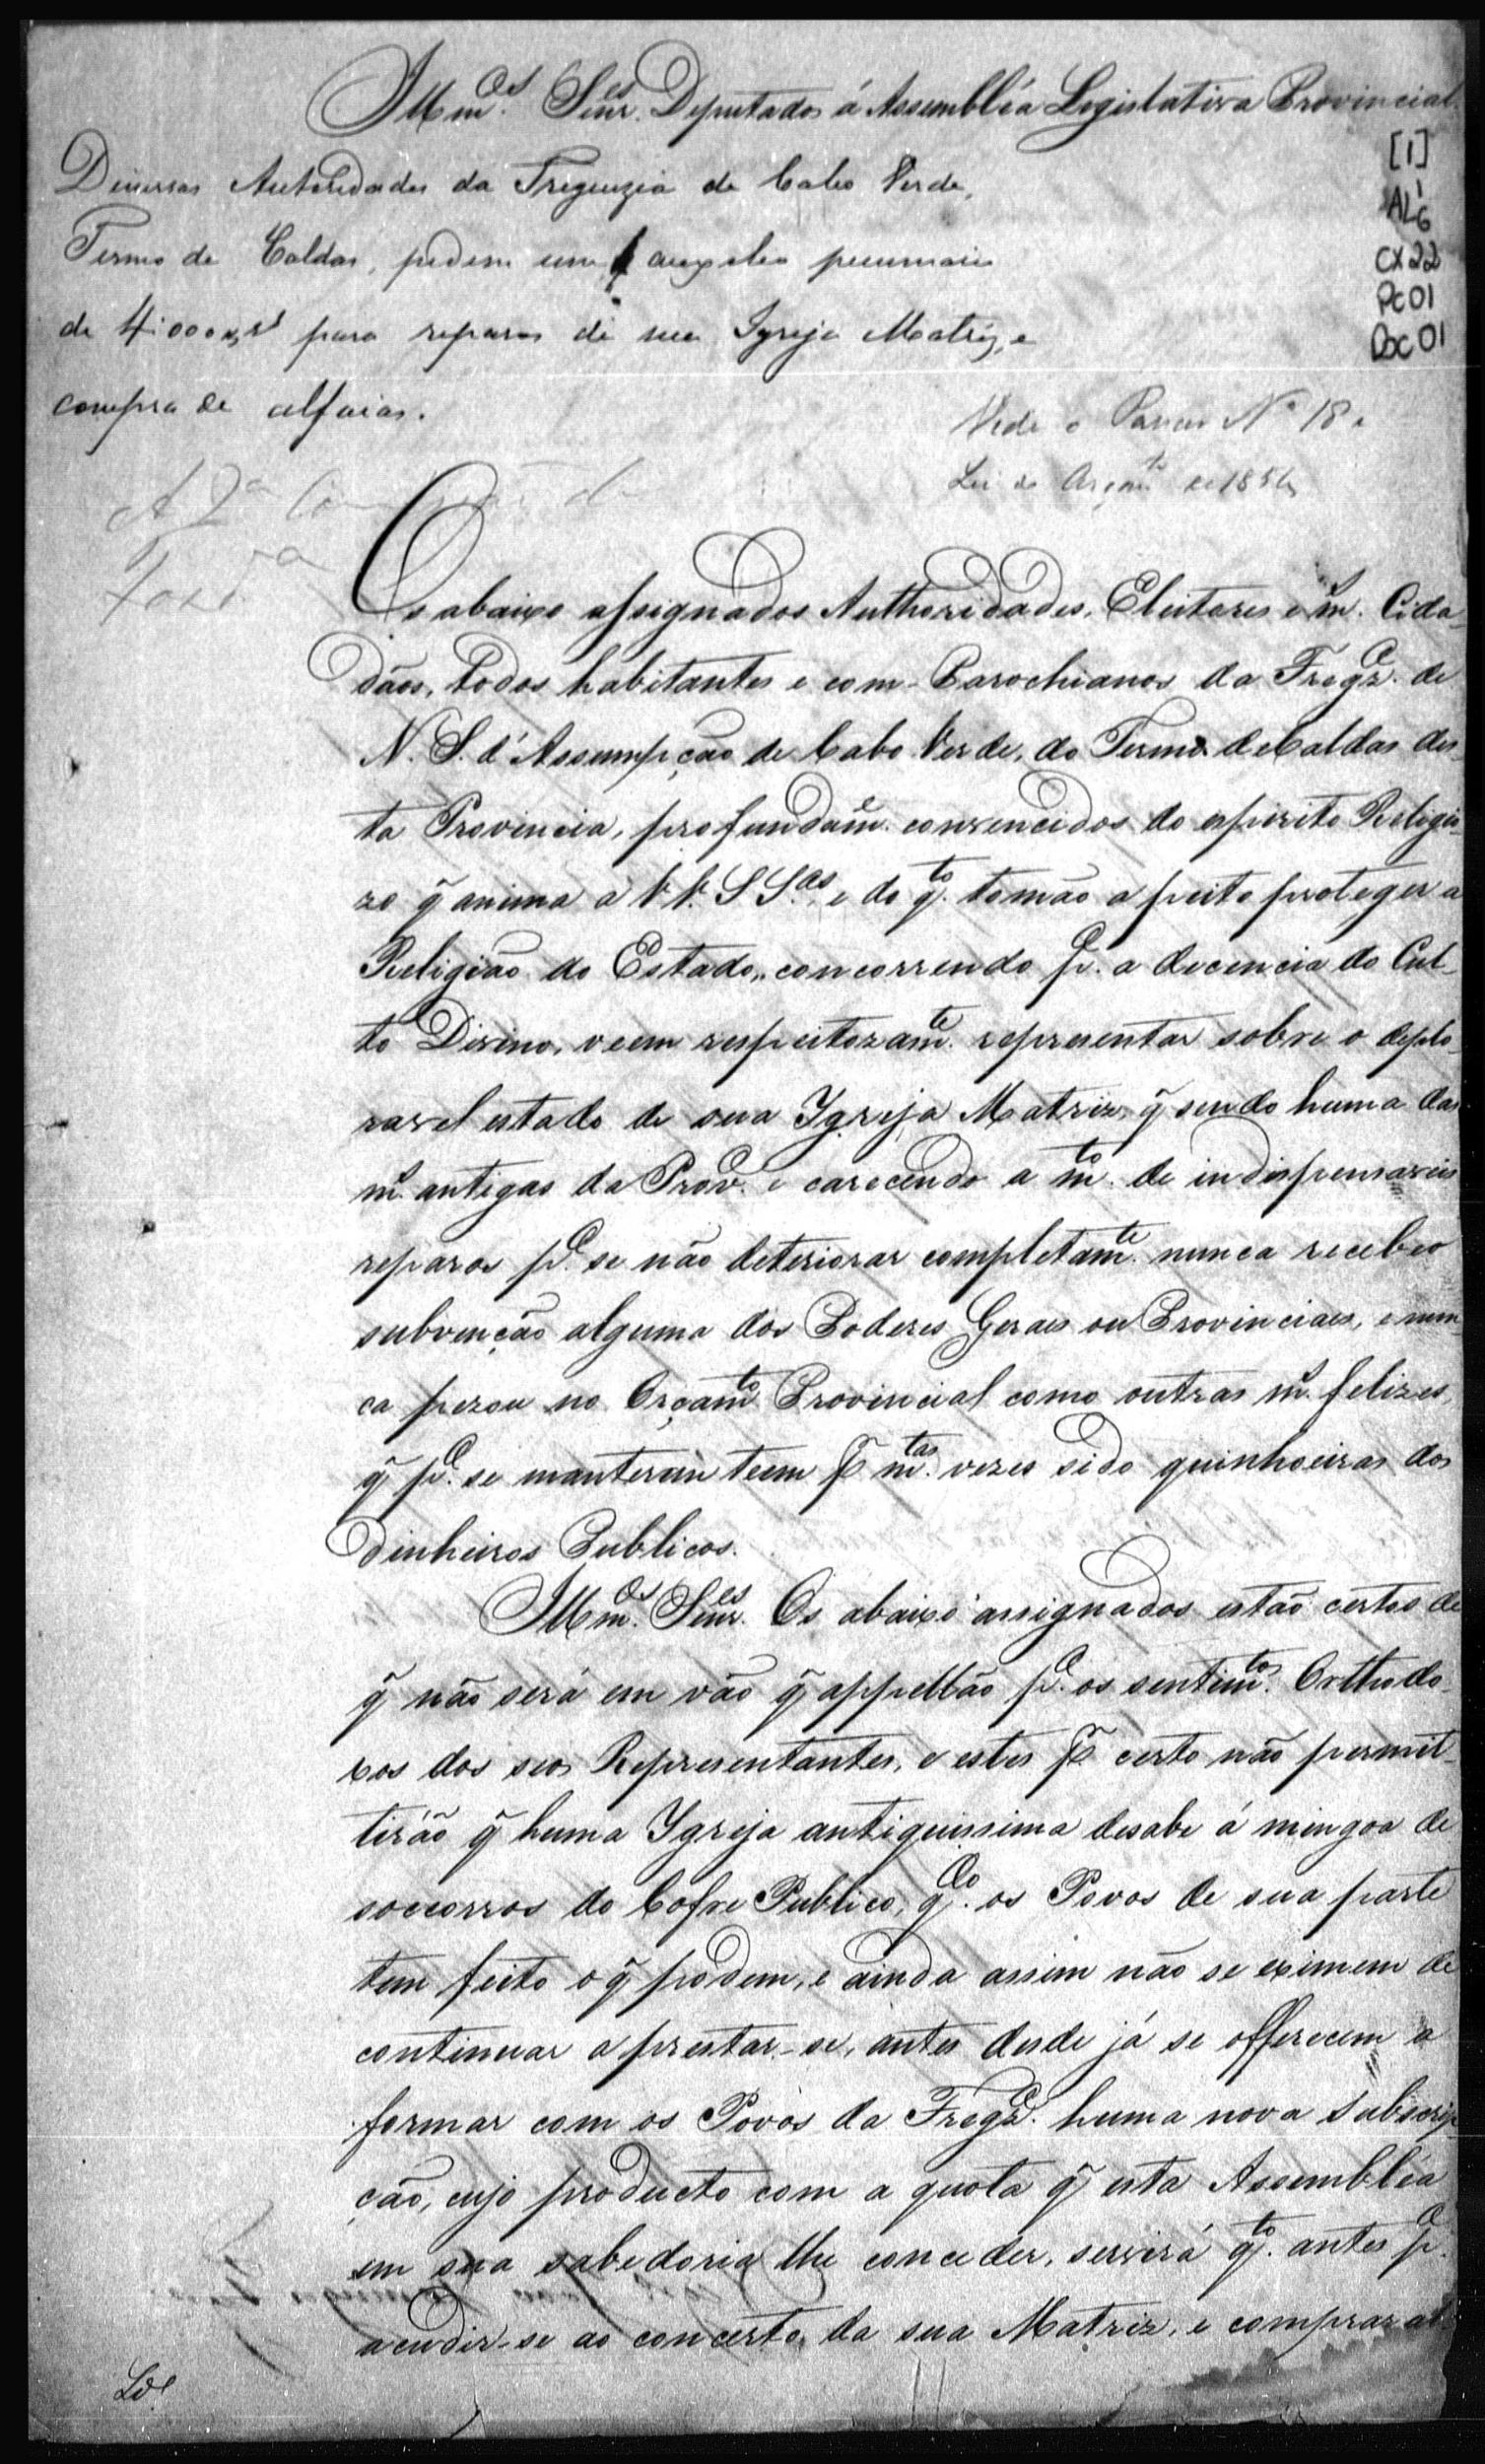 Illm.os Senr.es Deputados á Assembléa Legislativa Provincial.
[1]
AL1.6
CX22
Pc01
Doc01
Diversas Autoridades da Freguezia de Cabo Verde,
Termo de Caldas, pedem um auxilio pecuniario
de 4:000$rs para reparos de sua Igreja Matriz, e
compra de alfaias.
Vide o Parecer Nº 18 e
Lei do Orçam.to de 1856
A 2ª
Faz.da
Os abaixo assignados Authoridades, Eleitores e m.s Cida-
dãos, todos habitantes e com-Parochianos da Fregz.a de
N. S. d'Assumpção de Cabo Verde, do Termo de Caldas des-
ta Provincia, profundam.e convencidos do espirito Religio-
zo q̃ anima a VV. SS.as, e do q.to tomão a peito proteger a
Religião do Estado, concorrendo p.a a decencia do Cul-
to Divino, veem respeitozam.te representar sobre o deplo-
ravel estado de sua Igreja Matriz, q̃ sendo huma das
m.s antigas da Prov.a e carecendo a m.to de indispensaveis
reparos p.a se não deteriorar completam.te nunca recebeo
subvenção alguma dos Poderes Geraes ou Provinciaes, e nun-
ca pezou no Orçam.to Provincial como outras m.s felizes,
q̃ p.a se manterem teem p̃ m.tas vezes sido quinhoeiras dos
dinheiros Publicos.
Illm.os Senr.es Os abaixo assignados estão certos de
q̃ não será em vão q̃ appellão p.a os sentim.tos Orthodo-
xos dos seos Representantes, e estes p̃ certo não permit-
tirão q̃ huma Igreja antiquissima desabe á mingoa de
soccorros do Cofre Publico, q.do os Povos de sua parte
tem feito o q̃ podem, e ainda assim não se eximem de
continuar a prestar-se, antes desde já se offerecem a
formar com os Povos da Fregz.a huma nova Subscrip-
ção, cujo producto com a quota q̃ esta Assembléa
em sua sabedoria lhe conceder, servirá q.to antes p.a
acudir-se ao concerto da sua Matriz, e comprar al-